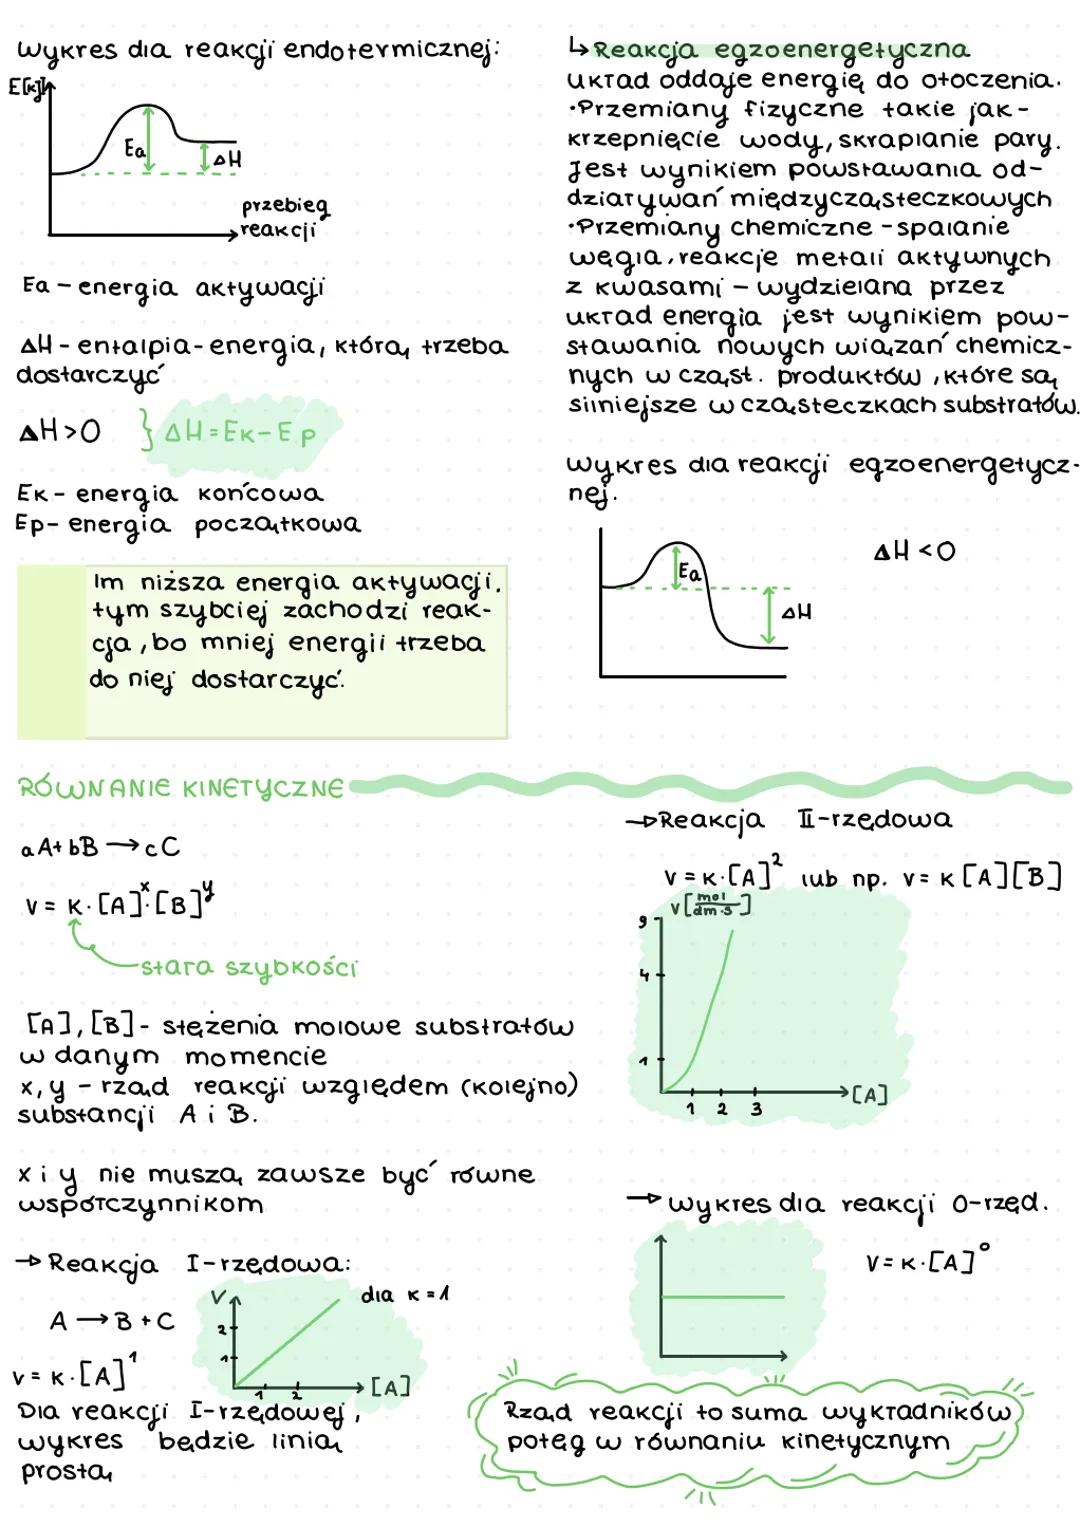 Wykres dla reakcji endotermicznej:
E[kJ]
Ea
ΔH
przebieg
reakcji
Ea - energia aktywacji
ΔH - entalpia - energia, którą trzeba
dostarczyć
ΔH > 0 } ΔH = Ek - Ep
Ek - energia końcowa
Ep - energia początkowa
Im niższa energia aktywacji,
tym szybciej zachodzi reak-
cja, bo mniej energii trzeba
do niej dostarczyć.
↳ Reakcja egzoenergetyczna
układ oddaje energię do otoczenia.
·Przemiany fizyczne takie jak -
krzepnięcie wody, skraplanie pary.
Jest wynikiem powstawania od-
działywań międzycząsteczkowych
·Przemiany chemiczne - spalanie
węgla, reakcje metali aktywnych
z kwasami - wydzielana przez
układ energia jest wynikiem pow-
stawania nowych wiązań chemicz-
nych w cząst. produktów, które są
silniejsze w cząsteczkach substratów.
Wykres dla reakcji egzoenergetycz-
nej.
Ea
ΔH
ΔH < 0
RÓWNANIE KINETYCZNE
aA + bB → cC
v = k · [A]ˣ · [B]ʸ
stała szybkości
[A], [B] - stężenia molowe substratów
w danym momencie
x, y - rząd reakcji względem (kolejno)
substancji A i B.
x i y nie muszą zawsze być równe
współczynnikom
→ Reakcja I-rzędowa:
A → B + C
v = k · [A]¹
V
dla k = 1
2
1
1 2
[A]
Dla reakcji I-rzędowej,
wykres będzie linią
prostą
→ Reakcja II-rzędowa
v = k · [A]² lub np. v = k [A][B]
v [mol/dm·s]
9
4
1
1 2 3
[A]
→ Wykres dla reakcji 0-rzęd.
v = k · [A]⁰
Rząd reakcji to suma wykładników
potęg w równaniu kinetycznym